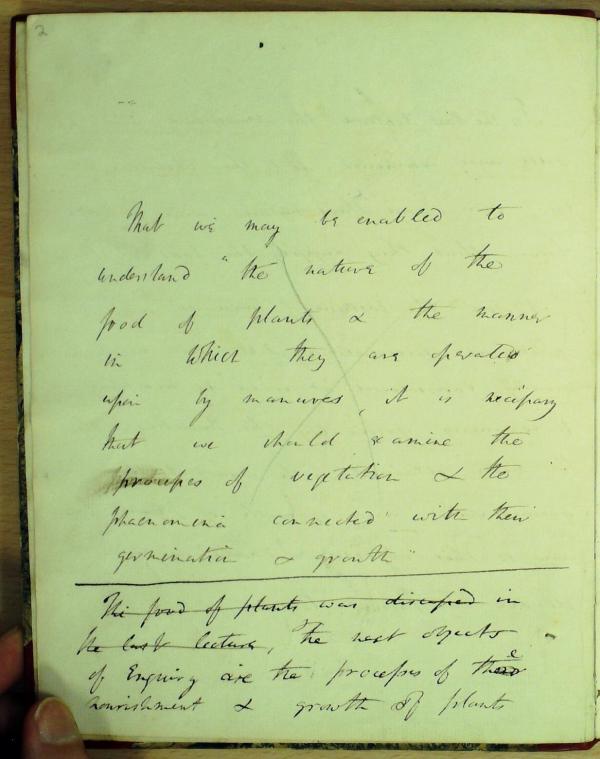 2
That we may be enabled to
understand "the nature of the
food of plants & the manner
in which they are operated
upon by manures, it is necessary
that we should examine the
processes of vegetation & the
phaenomena connected with their
germination & growth"
The food of plants was discussed in
the last lecture, The next objects
of Enquiry are the processes of the
nourishment & growth of plants